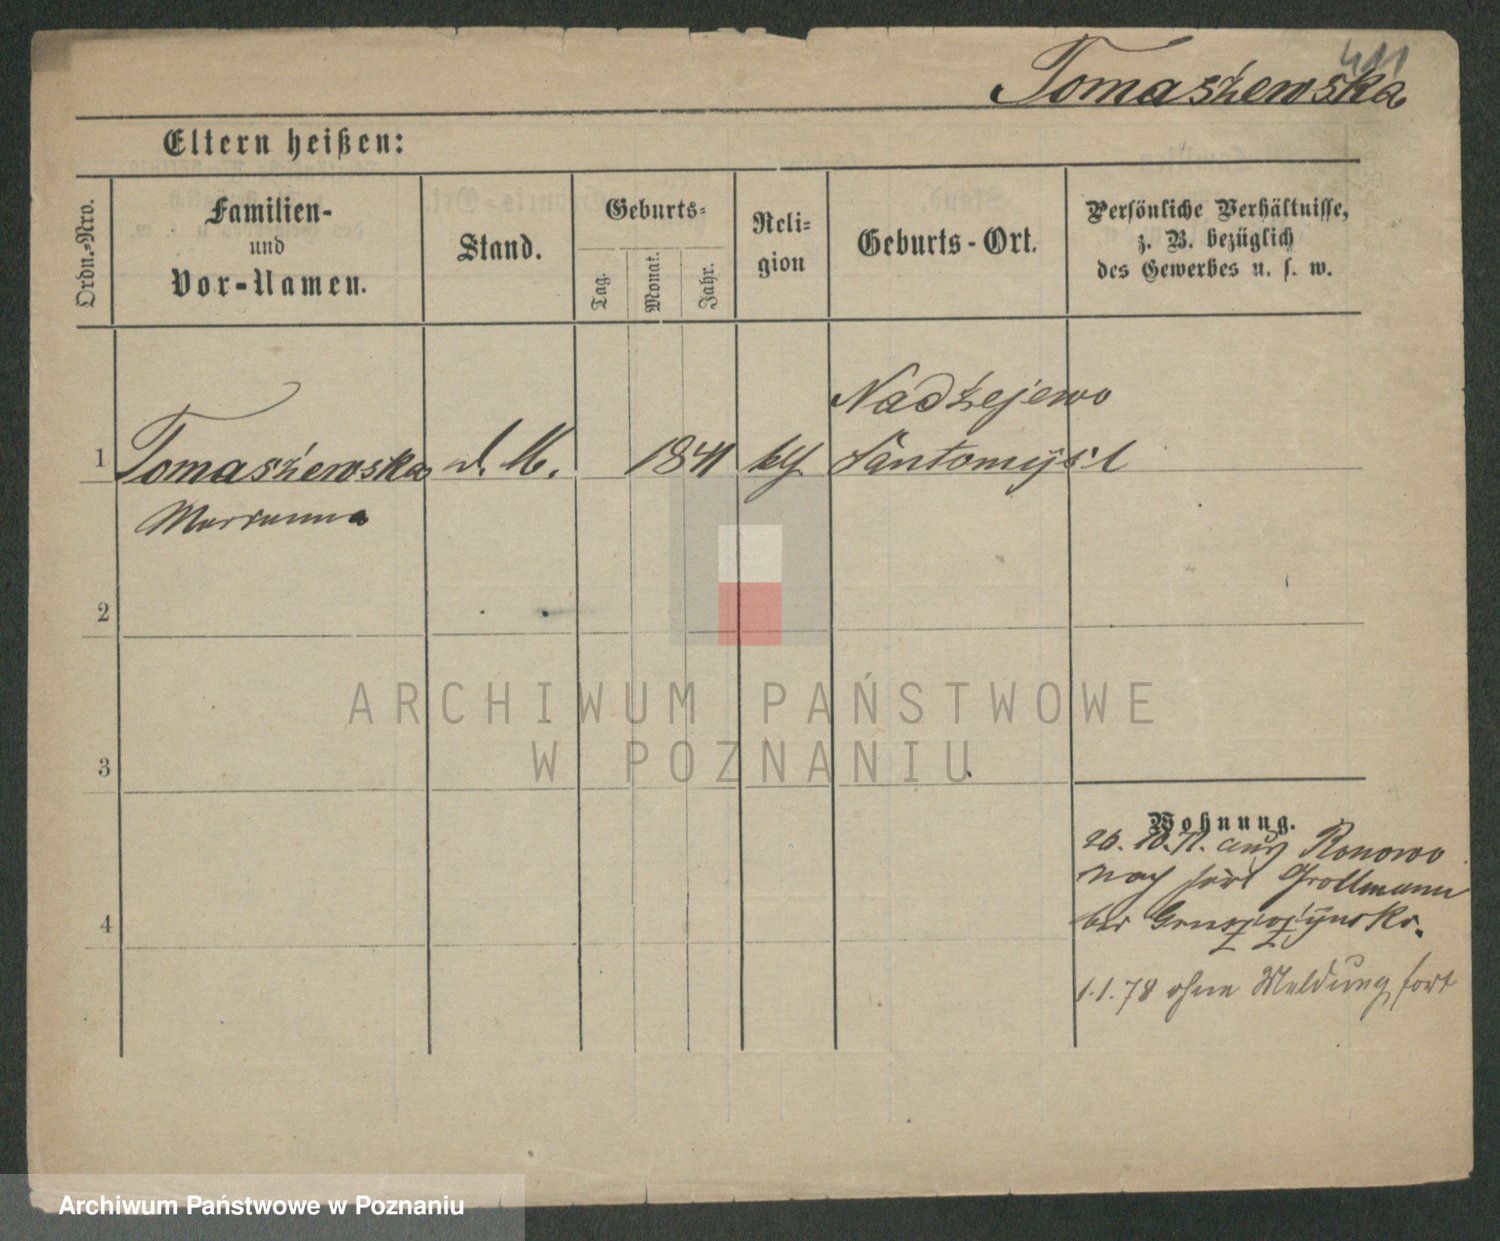 411
Tomaszewska
Eltern heißen:
Ordn.-Nro.
Familien-
und
Vor-Namen.
Stand.
Geburts-
Tag.
Monat.
Jahr.
Reli-
gion
Geburts-Ort.
Persönliche Verhältnisse,
z. B. bezüglich
des Gewerbes u. s. w.
Nadziejewo
1 Tomaszewska d. M. 1841 Santomysl
Marianna
2
3
4
ARCHIWUM PAŃSTWOWE
W POZNANIU
Wohnung.
26. 10. 71. aus Ronowo
nach fort Grollmann
bei
1.1.78 ohne Meldung fort
Archiwum Państwowe w Poznaniu